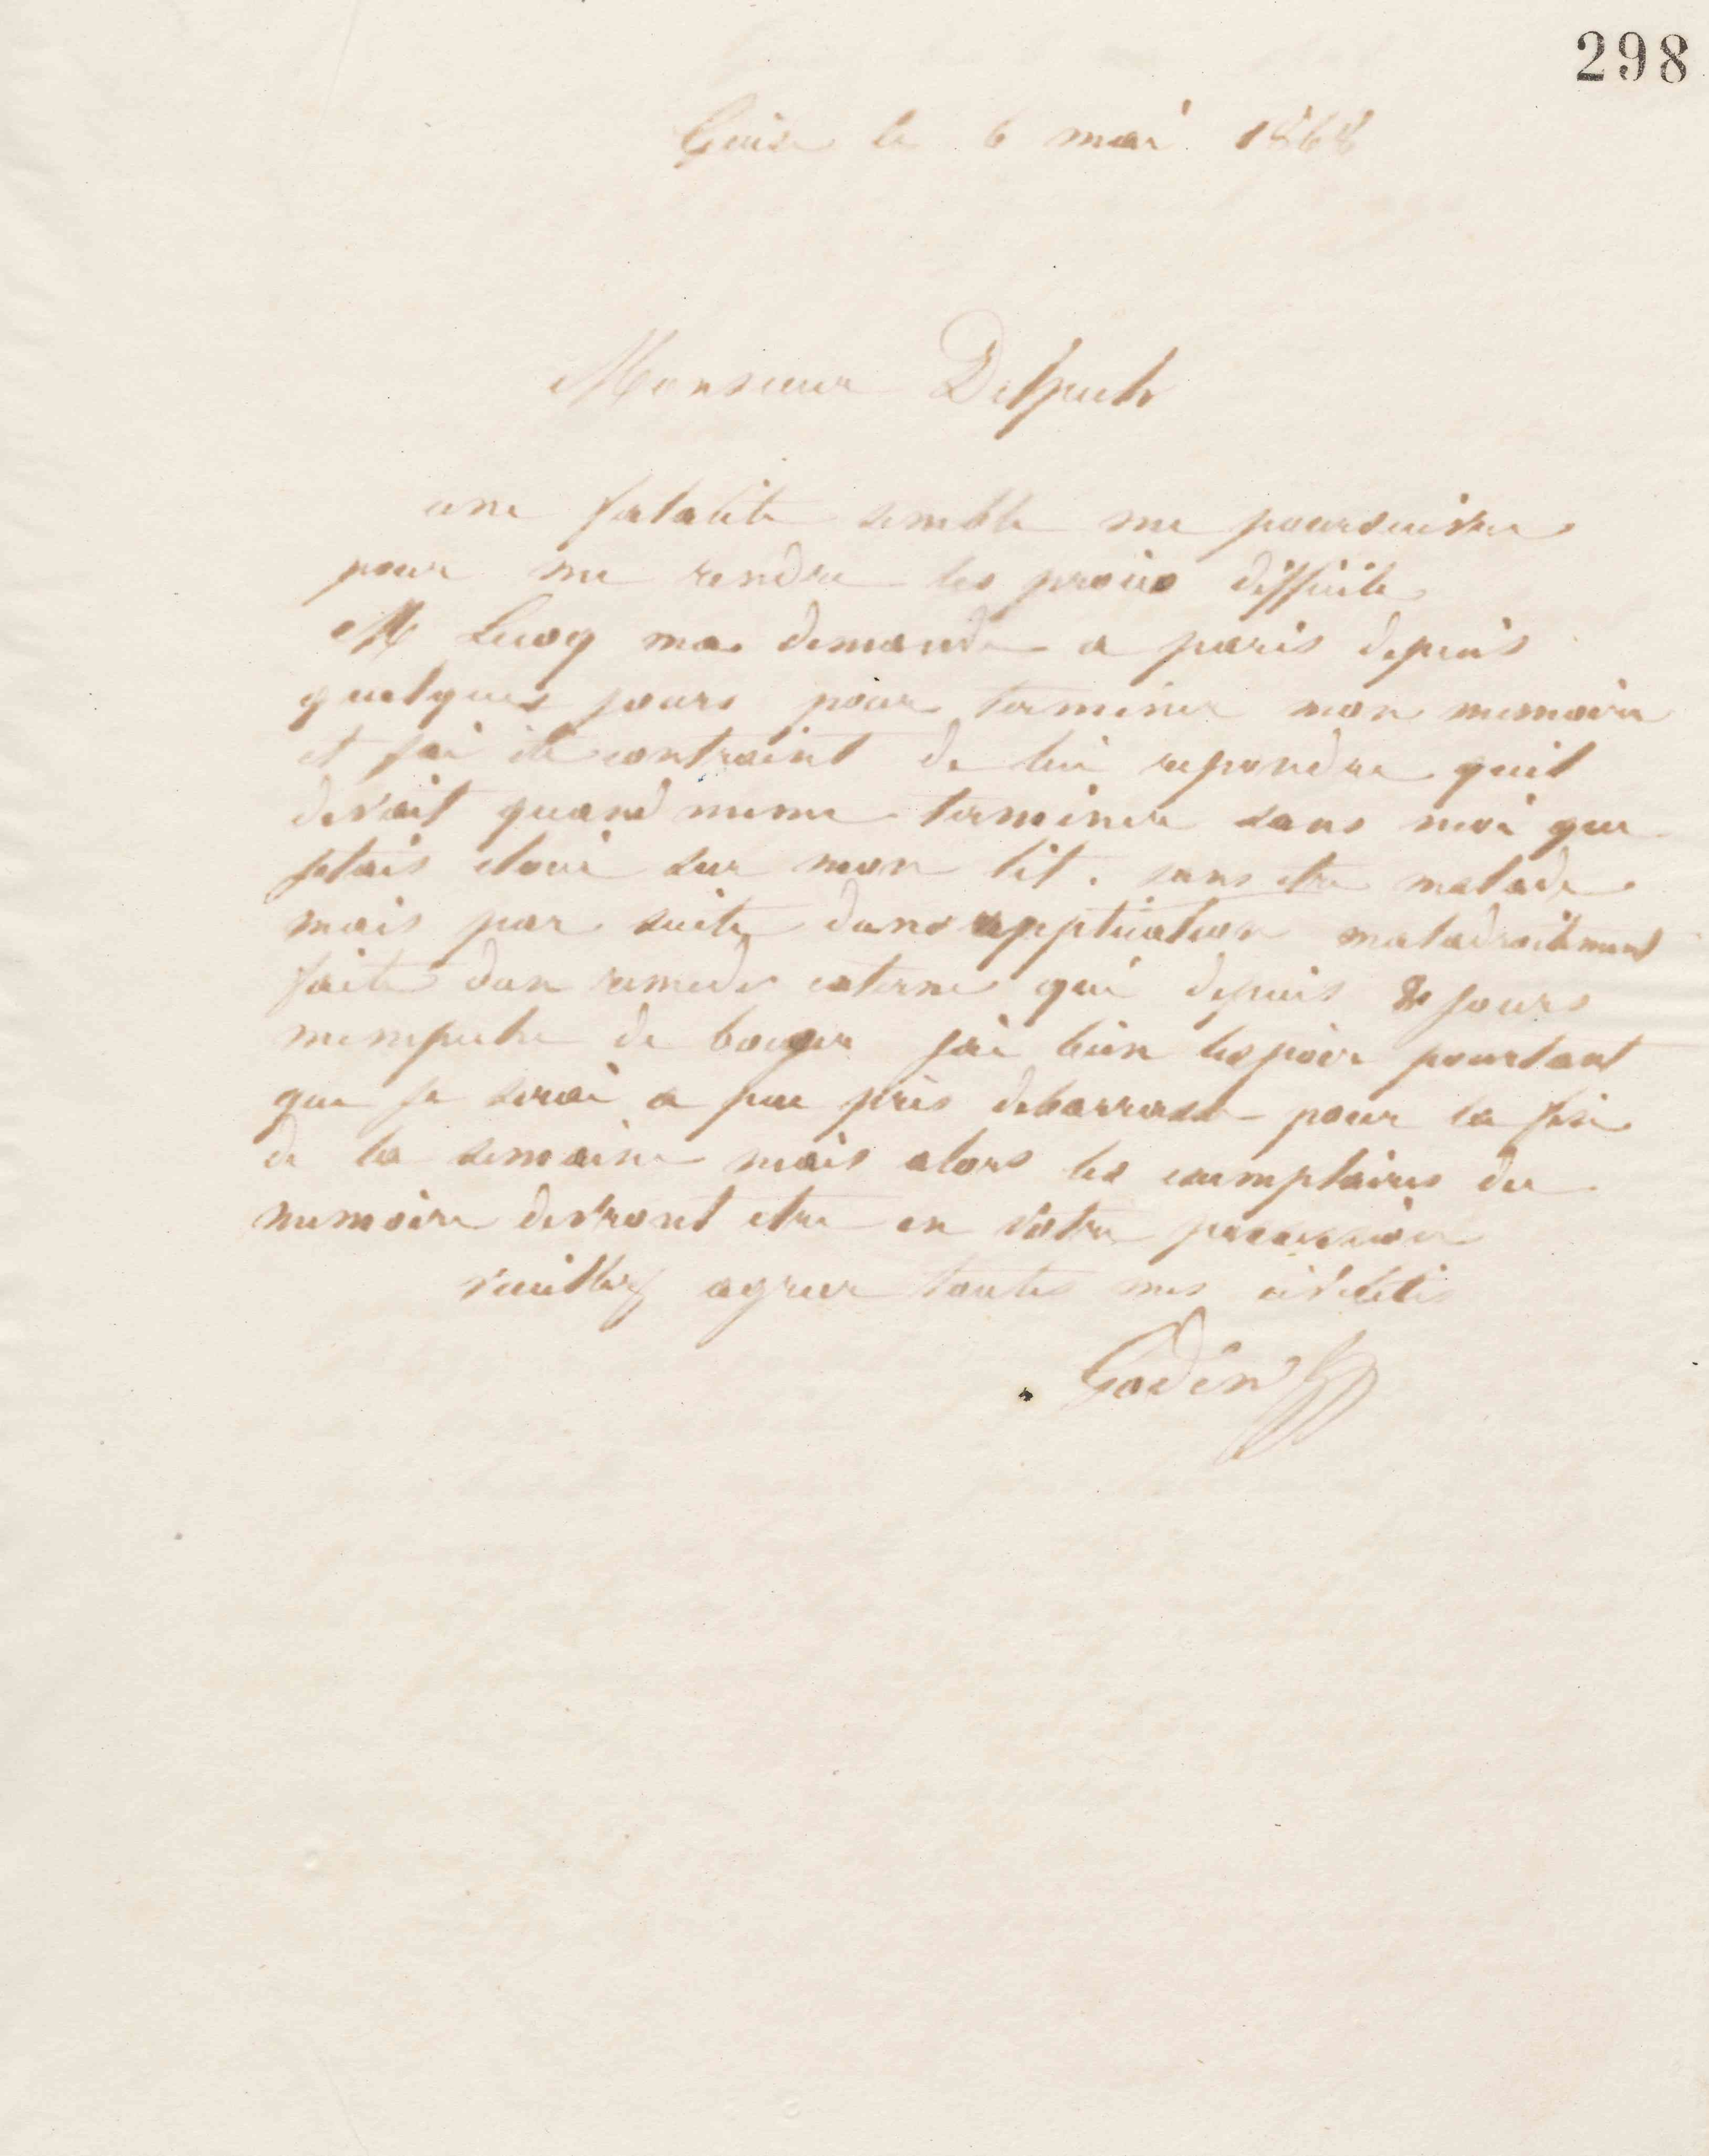 298
Guise le 6 mai 1868
Monsieur Delpech
une fatalite semble me poursuivre
pour me rendre les procès difficile
M Lecoq ma demandé a paris depuis
quelques jours pour terminer mon memoire
et jai été contraint de lui repondre quil
devait quand meme terminer sans moi que
jetais cloué sur mon lit. sans etre malade
mais par suite dune application maladroitement
faite dun remede externe qui depuis jours
mempeche de bouger jai bien lespoir pourtant
que je serai a peu près debarrassé pour la fin
de la semaine mais alors les exemplaires du
memoire devront etre en votre possession
veuillez agreer toutes mes civilités
Godin